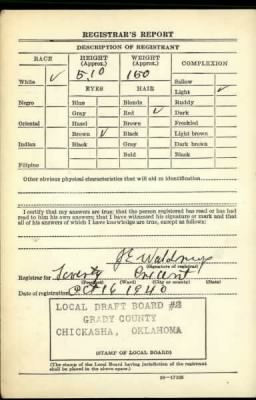 REGISTRAR'S REPORT
DESCRIPTION OF REGISTRANT
RACE HEIGHT (Approx.) WEIGHT (Approx.) COMPLEXION
White ✓ 5,10 160 Sallow
Light ✓
EYES HAIR
Negro Blue Blonde Ruddy
Gray Red ✓ Dark
Oriental Hazel Brown Freckled
Brown ✓ Black Light brown
Indian Black Gray Dark brown
Bald Black
Filipino
Other obvious physical characteristics that will aid in identification
I certify that my answers are true; that the person registered has read or has had
read to him his own answers; that I have witnessed his signature or mark and that
all of his answers of which I have knowledge are true, except as follows:
(Signature of registrar)
Registrar for
(Precinct) (Ward) (City or county) (State)
Date of registration Oct 16 1940
LOCAL DRAFT BOARD #2
GRADY COUNTY
CHICKASHA, OKLAHOMA
(STAMP OF LOCAL BOARD)
(The stamp of the Local Board having jurisdiction of the registrant
shall be placed in the above space.)